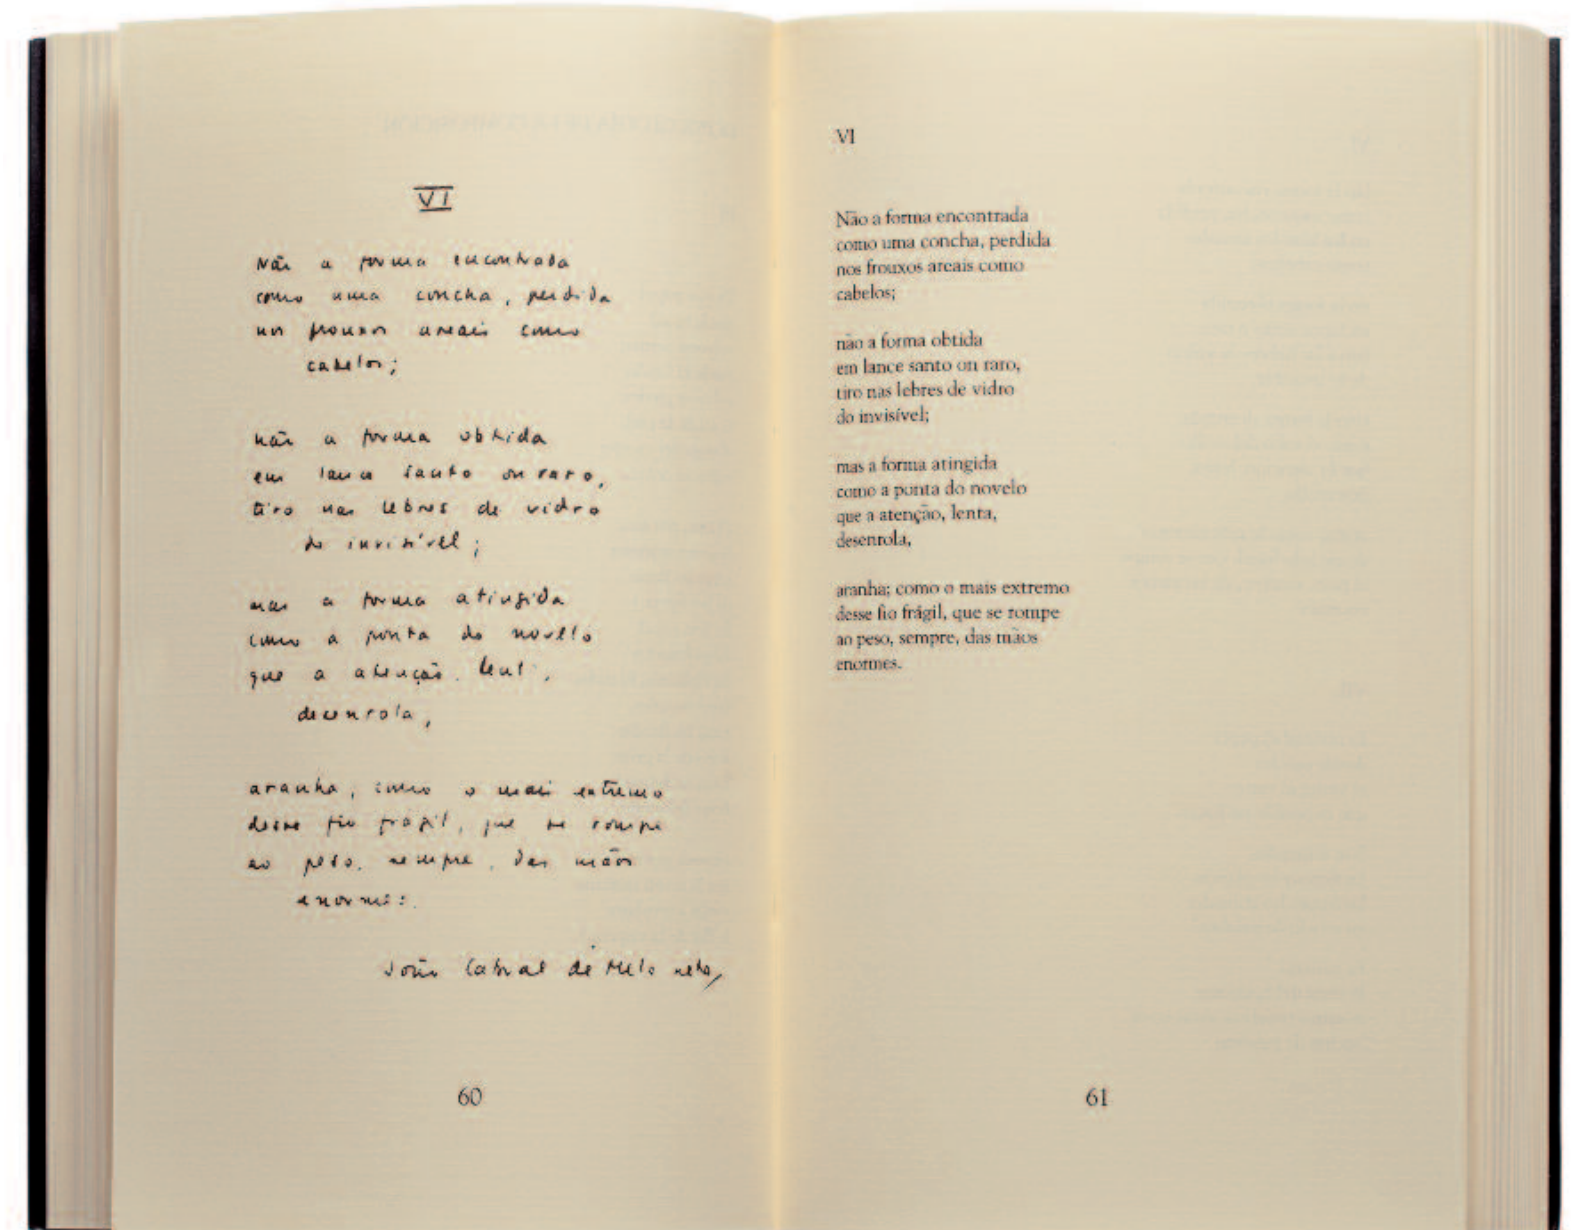 VI
Não a forma encontrada
como uma concha, perdida
nos frouxos areais como
cabelos;
não a forma obtida
em lance santo ou raro,
tiro nas lebres de vidro
do invisível;
mas a forma atingida
como a ponta do novello
que a atenção, lenta,
desenrola,
aranha, como o mais extremo
desse fio frágil, que se rompe
ao peso, sempre, das mãos
enormes.
João Cabral de Melo Neto
60
VI
Não a forma encontrada
como uma concha, perdida
nos frouxos areais como
cabelos;
não a forma obtida
em lance santo ou raro,
tiro nas lebres de vidro
do invisível;
mas a forma atingida
como a ponta do novelo
que a atenção, lenta,
desenrola,
aranha; como o mais extremo
desse fio frágil, que se rompe
ao peso, sempre, das mãos
enormes.
61